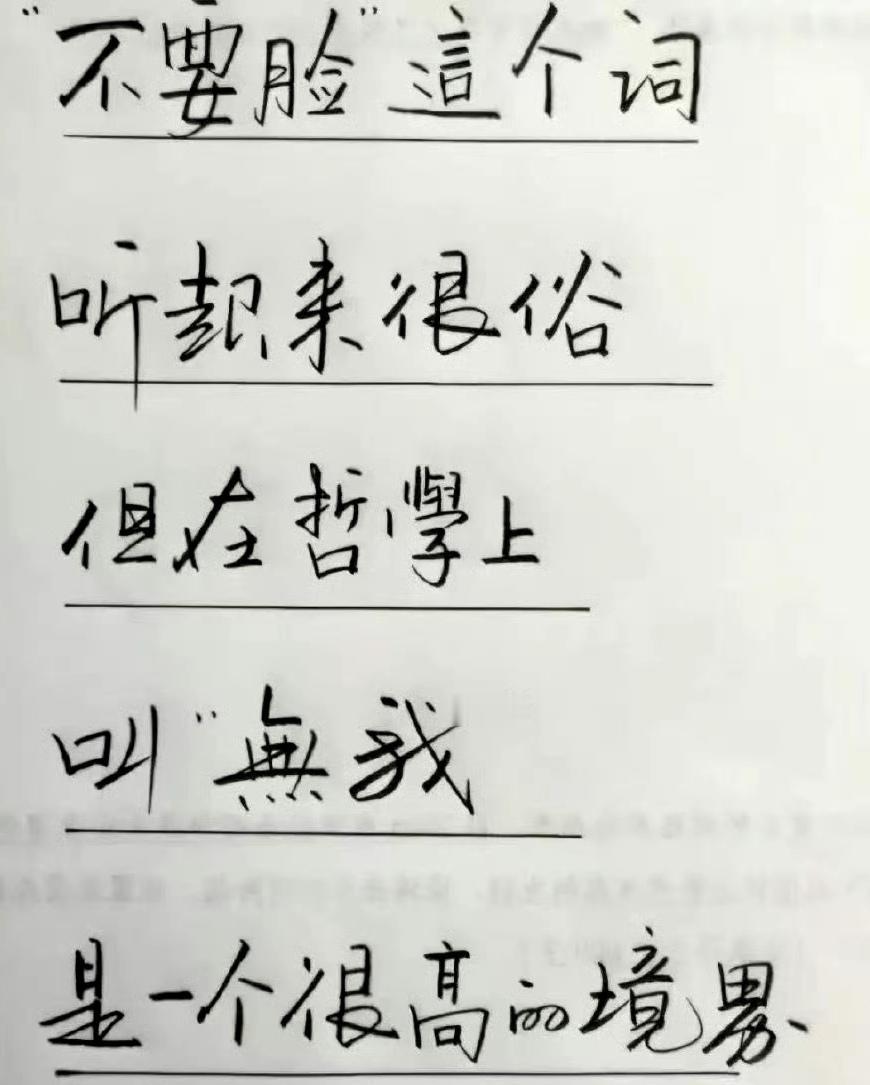 “不要脸”這个词
听起来很俗
但在哲學上
叫“無我
是一个很高的境界